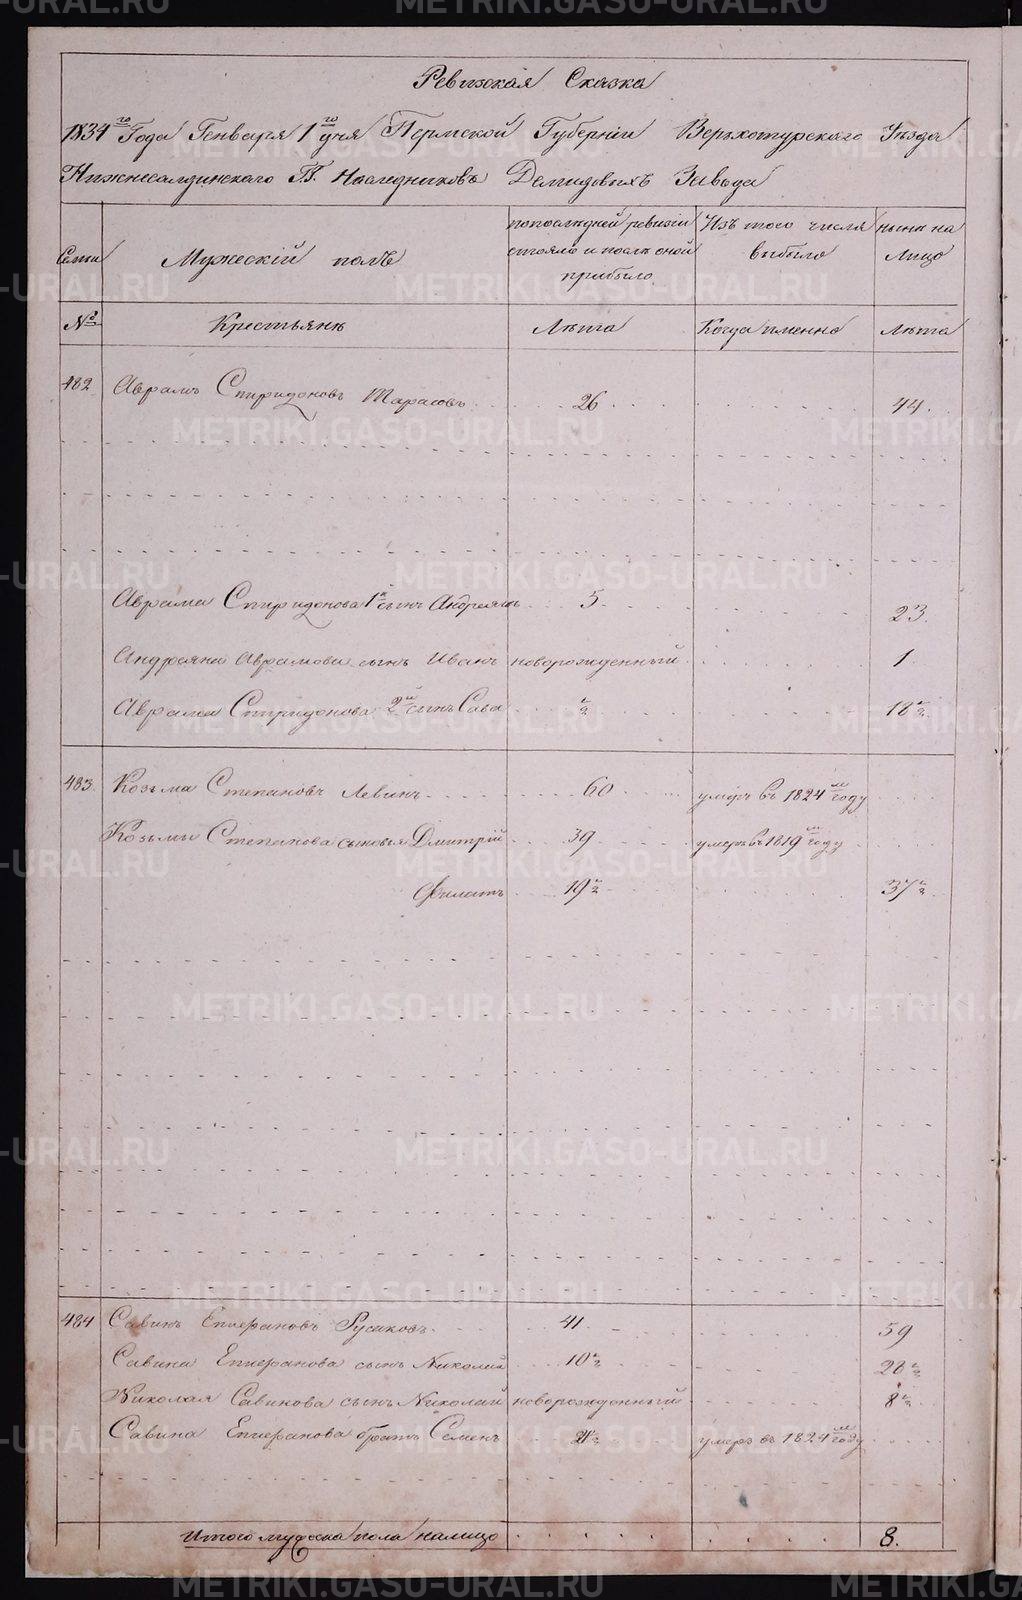 Ревизская Сказка
1834го Года Генваря 1го дня Пермской Губернiи Верхотурскаго Уѣзда
Нижнесалдинскаго Г.Г. Наследниковъ Демидовыхъ Завода
Семьи
Мужескiй полъ
попослѣдней ревизiи
стояло и послѣ оной
прибыло
Изъ того числа
выбыло
нынѣ на
лицо
№
Крестьянѣ
Лѣта
Когда именно
Лѣта
482 Аврамъ Спиридоновъ Тарасовъ 26 44.
Аврама Спиридонова 1й сынъ Андреянъ 5 23.
Андреяна Аврамова сынъ Иванъ новорожденный 1
Аврама Спиридонова 2й сынъ Сава ½ 18½
483. Козьма Степановъ Левинъ 60 умеръ въ 1824м году
Козьмы Степанова сыновья Дмитрiй 39 умеръ въ 1819м году
Филатъ 19½ 37½
484 Савинъ Епиерановъ Русаковъ 41 59
Савина Епиеранова сынъ Николай 10½ 28½
Николая Савинова сынъ Николай новорожденный 8½
Савина Епиеранова братъ Семенъ 21½ умеръ въ 1824м году
Итого мужеска пола налицо 8.
METRIKI.GASO-URAL.RU